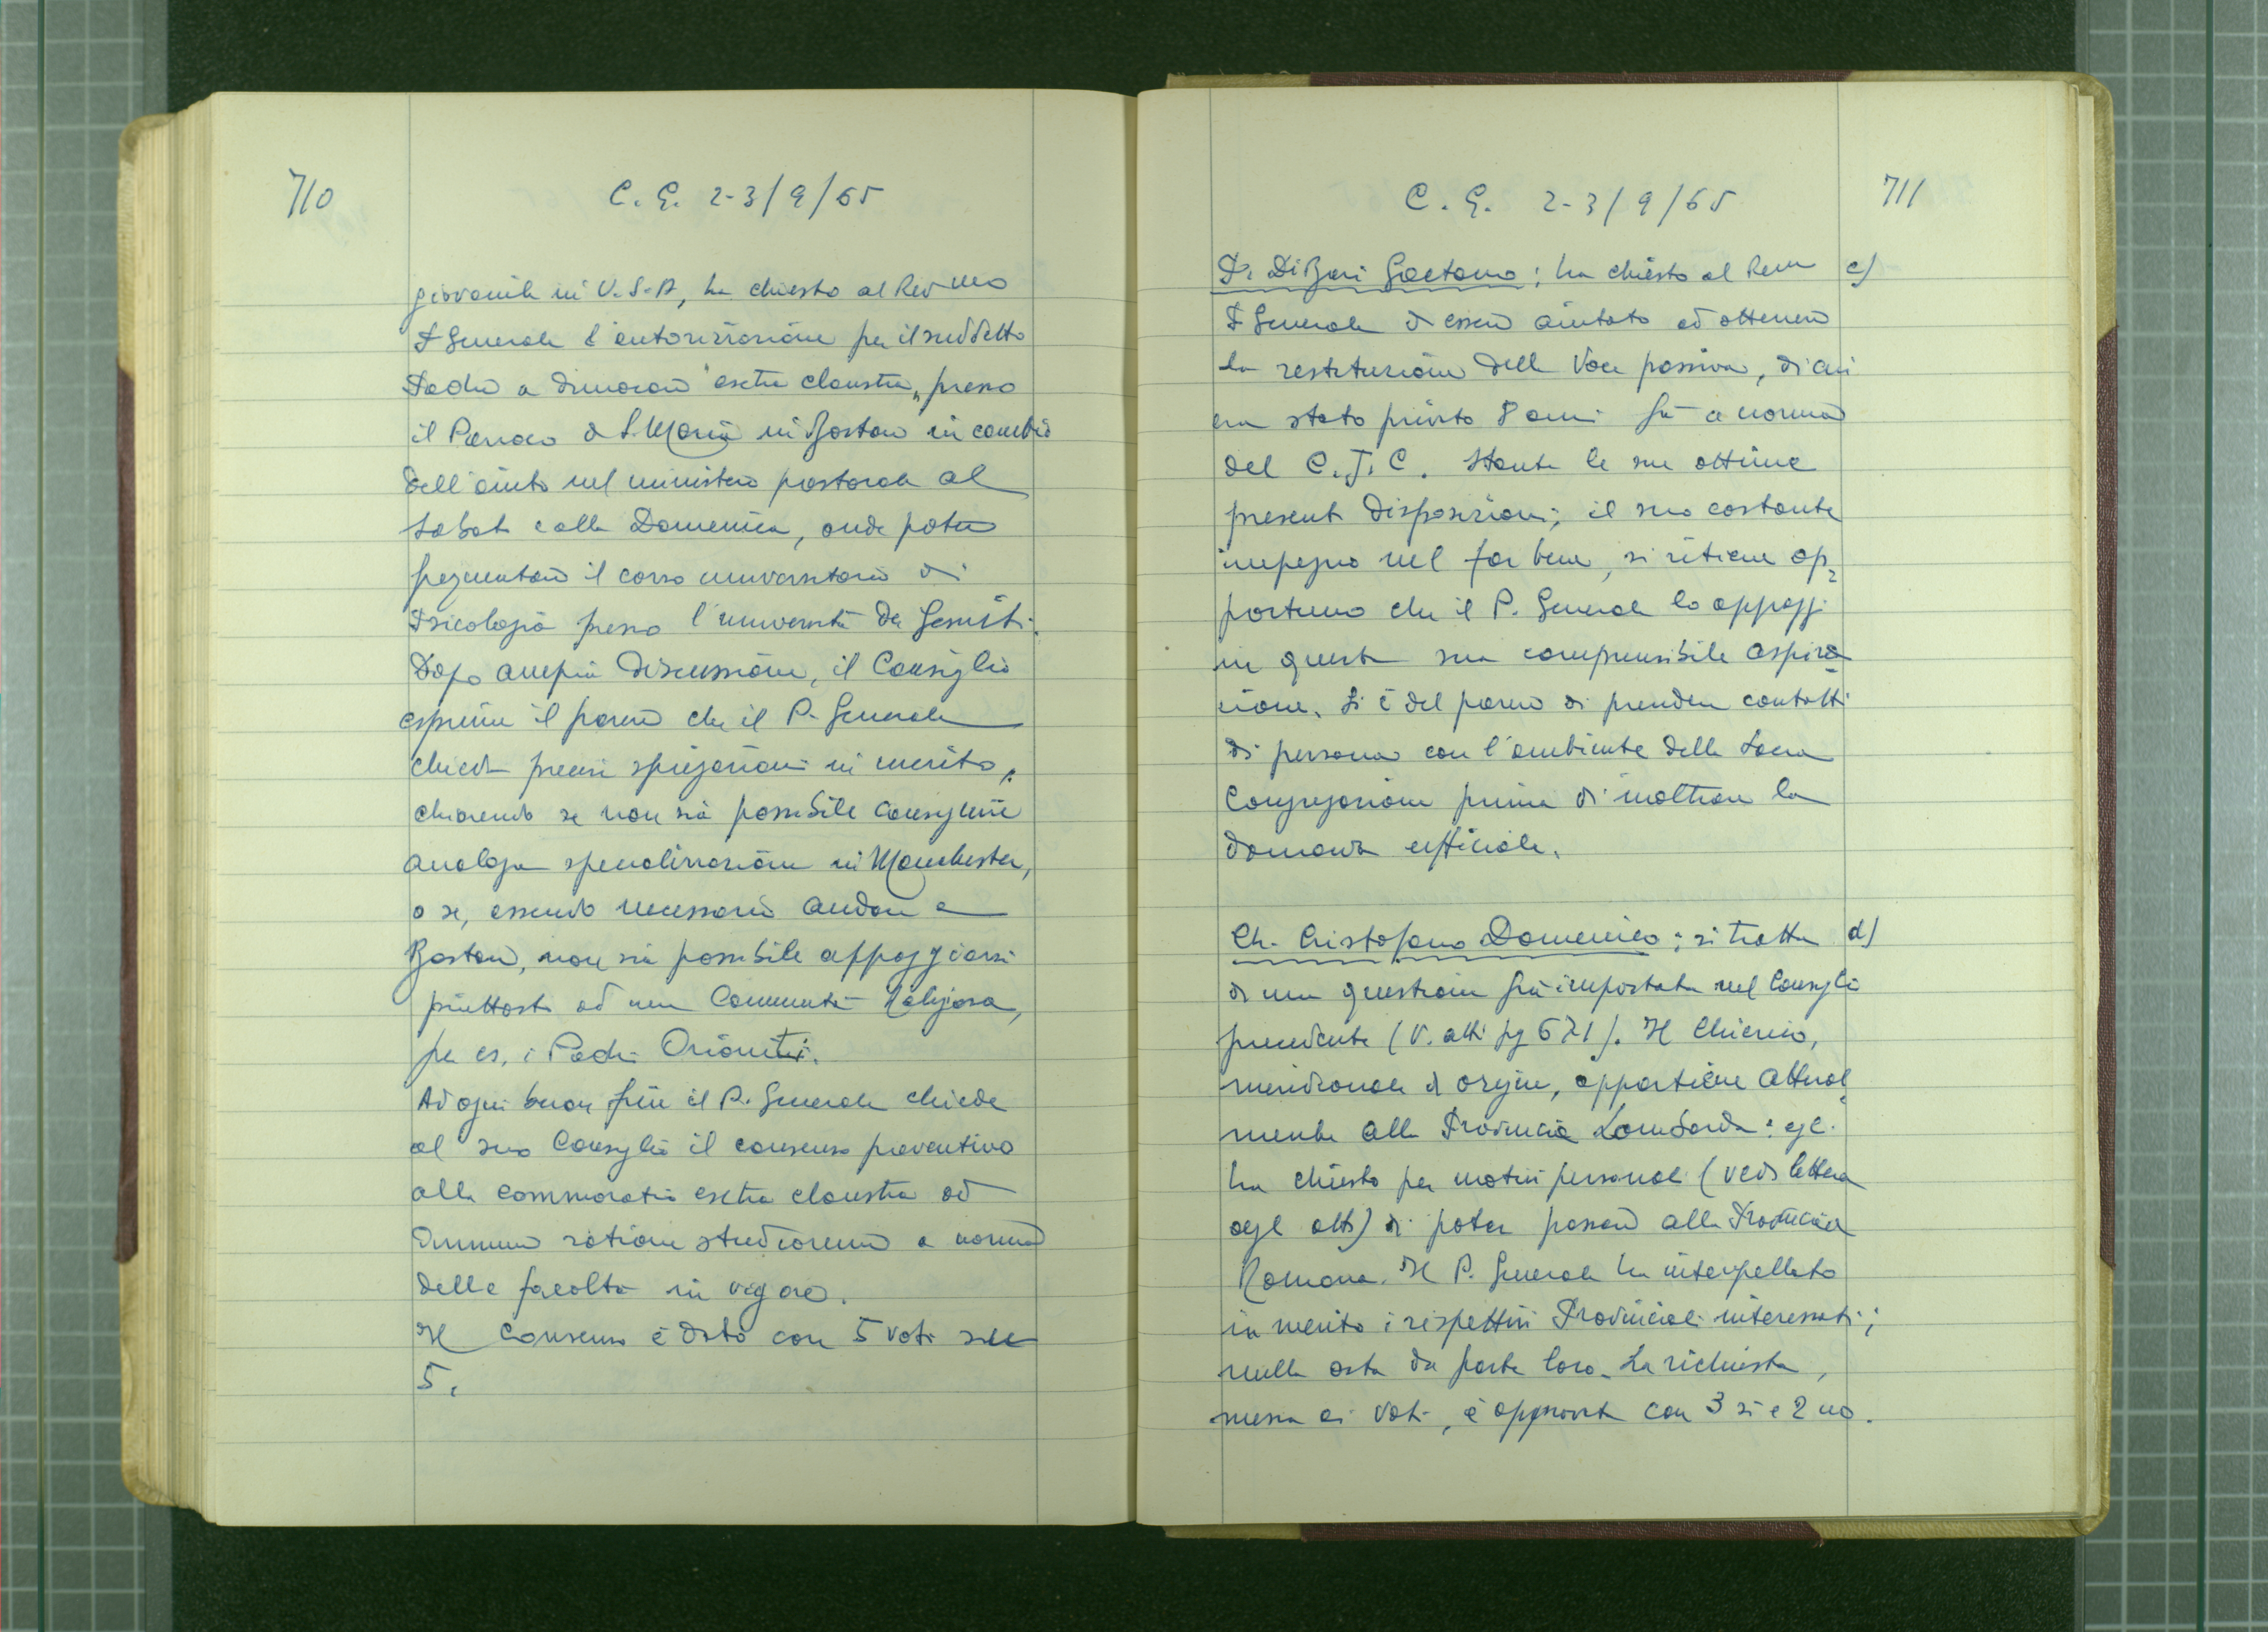 710
C. G. 2-3/9/65
giovanile in U.S.A, ha chiesto al Rev.mo
P. Generale l'autorizzazione per il suddetto
Padre a dimorare "extra claustra" presso
il Parroco di S. Maria in Boston in cambio
dell'aiuto nel ministero pastorale al
Sabato e alla Domenica, onde poter
frequentare il corso universitario di
Psicologia presso l'università dei Gesuiti.
Dopo ampia discussione, il Consiglio
esprime il parere che il P. Generale
chieda precise spiegazioni in merito,
chiarendo se non sia possibile conseguire
analoga specializzazione in Manchester,
o se, essendo necessario andare a
Boston, non sia possibile appoggiarsi
piuttosto ad una Comunità Religiosa,
per es. i Padri Orionisti.
Ad ogni buon fine il P. Generale chiede
al suo Consiglio il consenso preventivo
alla commoratio extra claustra ad
annum ratione studiorum a norma
delle facoltà in vigore.
Il Consenso è dato con 5 voti su
5.
C. G. 2-3/9/65
711
P. Di Bari Gaetano: ha chiesto al Rev.mo c)
P. Generale di essere aiutato ad ottenere
la restituzione della Voce passiva, di cui
era stato privato 8 anni fa a norma
del C.J.C. Stante le sue ottime
presenti disposizioni, il suo costante
impegno nel far bene, si ritiene op=
portuno che il P. Generale lo appoggi
in questa sua comprensibile aspira=
zione. Si è del parere di prendere contatti
di persona con l'ambiente della Sacra
Congregazione prima di inoltrare la
domanda ufficiale.
Ch. Cristofano Domenico: si tratta d)
di una questione già impostata nel Consiglio
precedente (V. atti pg 671). Il Chierico,
meridionale di origine, appartiene attual=
mente alla Provincia Lombarda: egli
ha chiesto per motivi personali (vedi lettera
agli atti) di poter passare alla Provincia
Romana. Il P. Generale ha interpellato
in merito i rispettivi Provinciali interessati;
nulla osta da parte loro. La richiesta,
messa ai voti, è approvata con 3 si e 2 no.